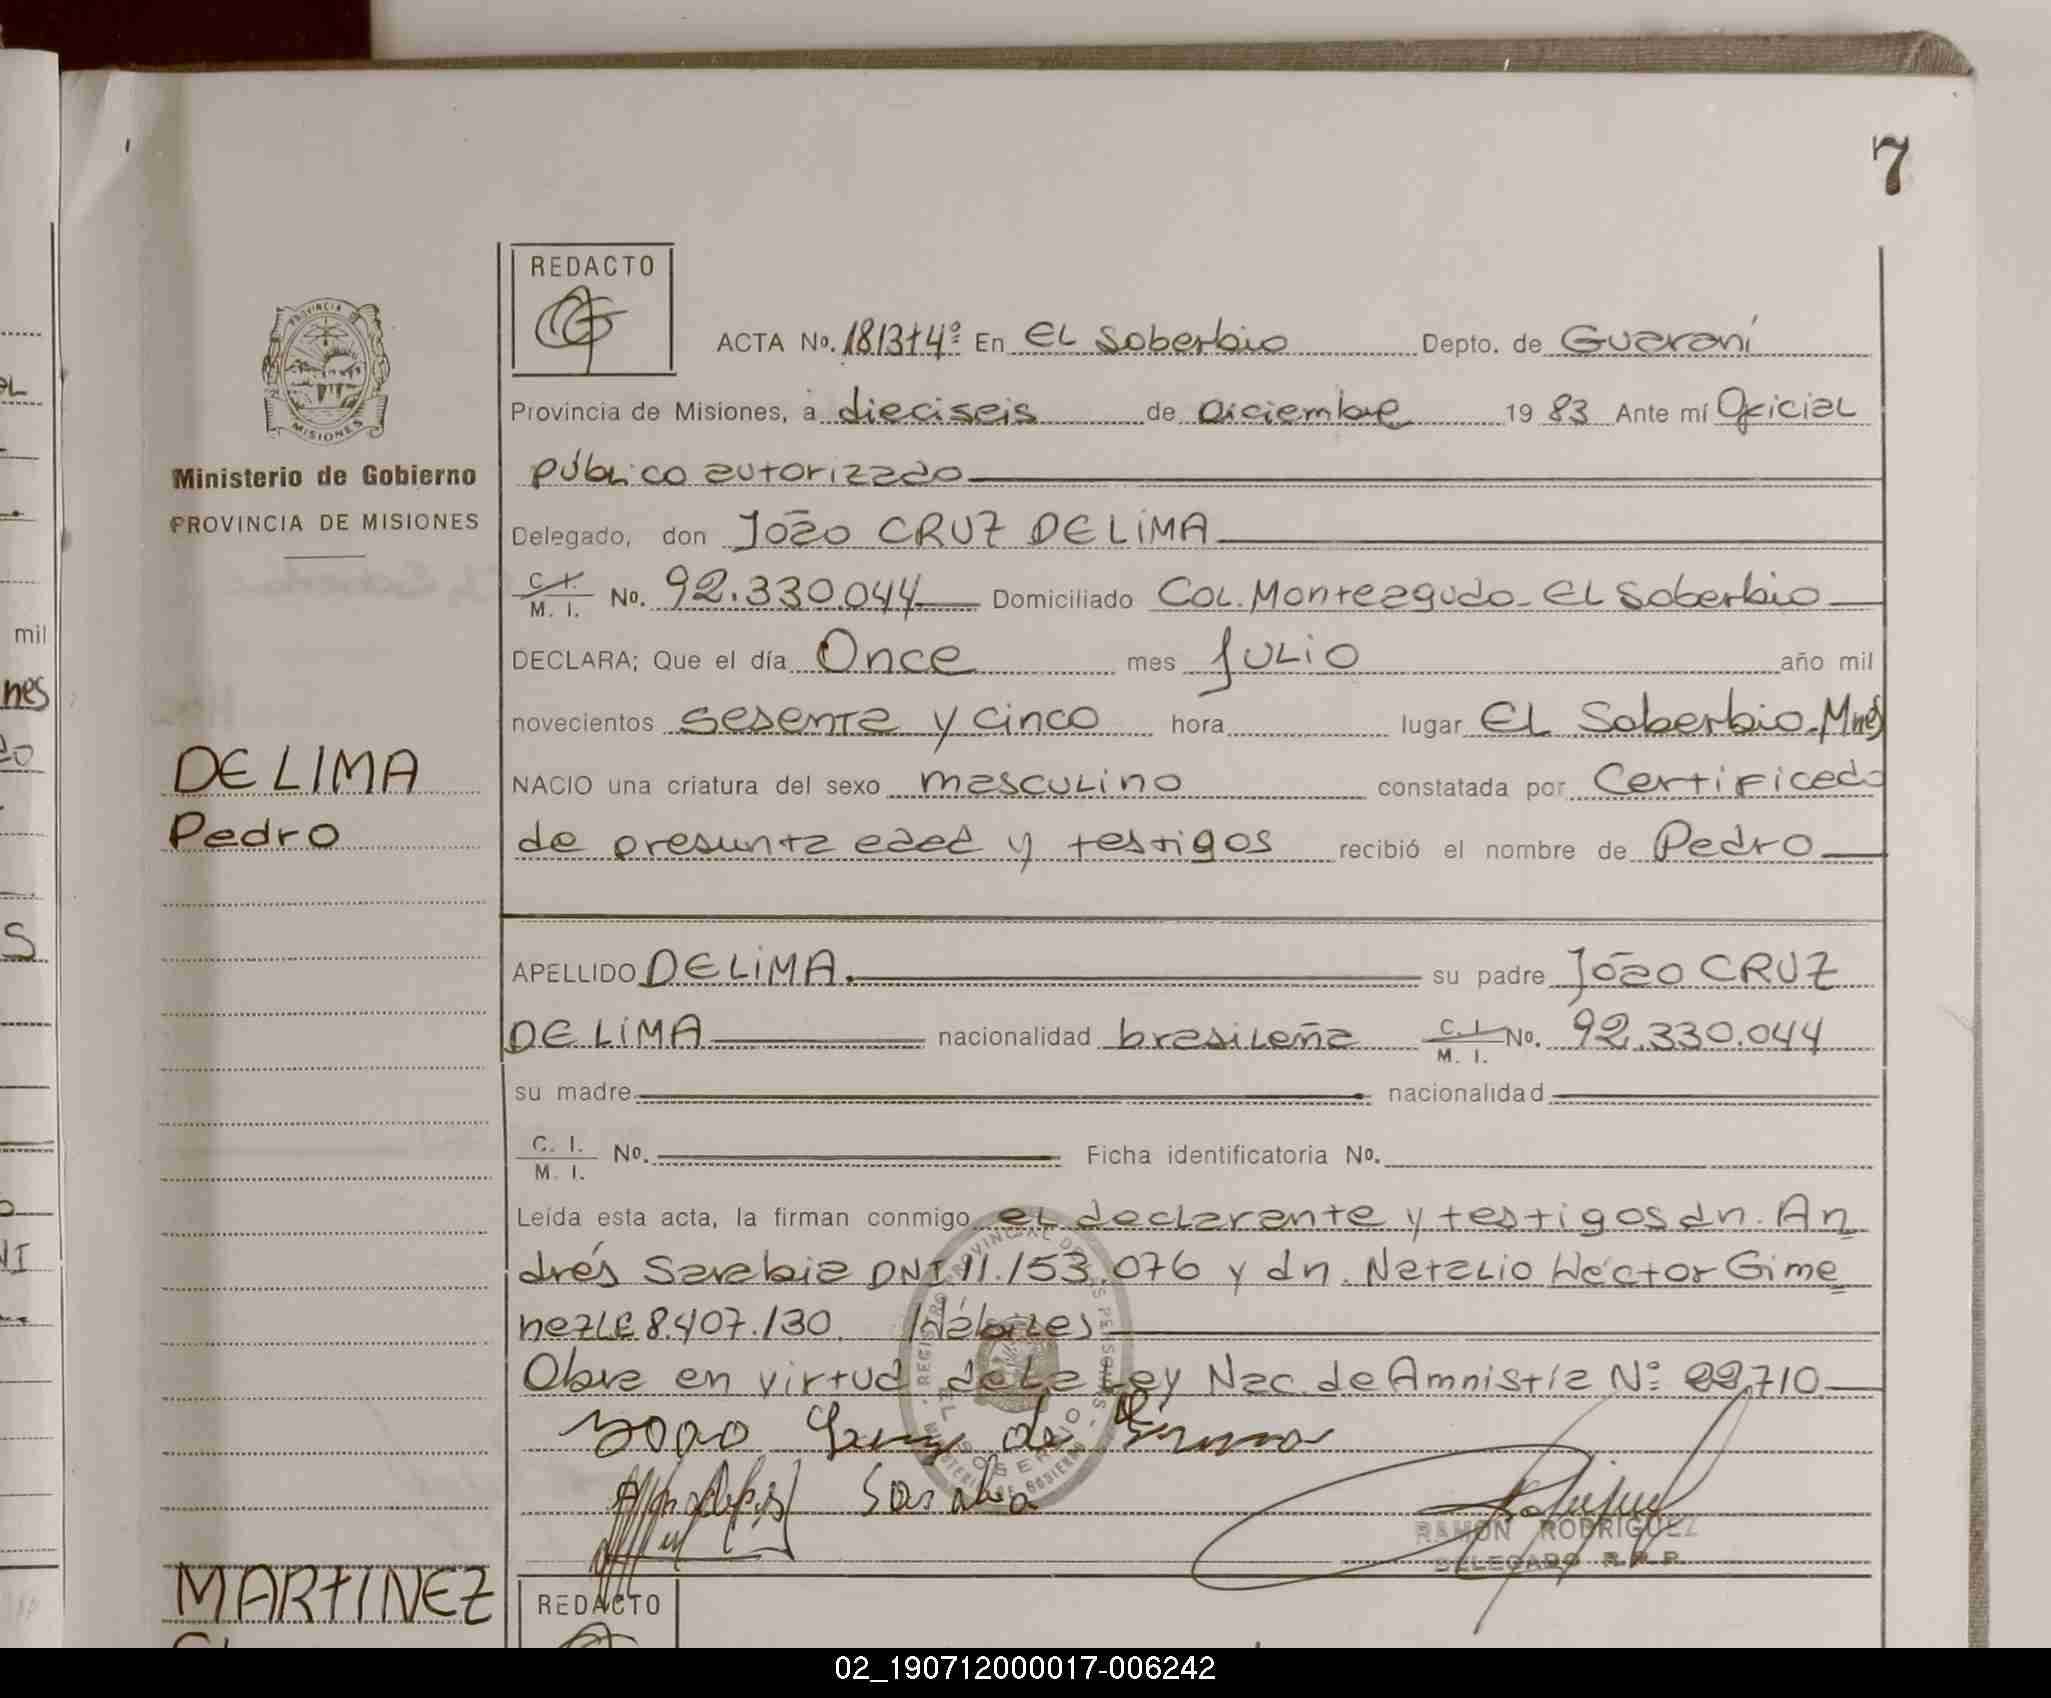 7
REDACTO
PROVINCIA DE
MISIONES
Ministerio de Gobierno
PROVINCIA DE MISIONES
ACTA Nº. 1813t4º En EL Soberbio Depto. de Guaraní
Provincia de Misiones, a dieciseis de Diciembre 19 83 Ante mí Oficial
público autorizado
Delegado, don João CRUZ DE LIMA
C. I. M. I. Nº. 92.330.044 Domiciliado Col. Monteagudo - EL Soberbio
DECLARA; Que el día Once mes Julio año mil
novecientos sesenta y cinco hora lugar EL Soberbio - Mnes
NACIO una criatura del sexo masculino constatada por Certificado
de presunta edad y testigos recibió el nombre de Pedro
DE LIMA
Pedro
APELLIDO DE LIMA. su padre João CRUZ
DE LIMA nacionalidad brasileña C. I. M. I. Nº. 92.330.044
su madre nacionalidad
C. I. M. I. Nº. Ficha identificatoria Nº.
Leída esta acta, la firman conmigo el declarante y testigos dn. An
drés Sarabia DNI 11.153.076 y dn. Natalio Héctor Gime
nez LE 8.407.130. Hábiles
Obra en virtud de la Ley Nac. de Amnistía Nº 22.710
João Cruz de Lima
Sarabia
RAMON RODRIGUEZ
DELEGADO R.P.P.
MARTINEZ
REDACTO
mil
nes
02_190712000017-006242